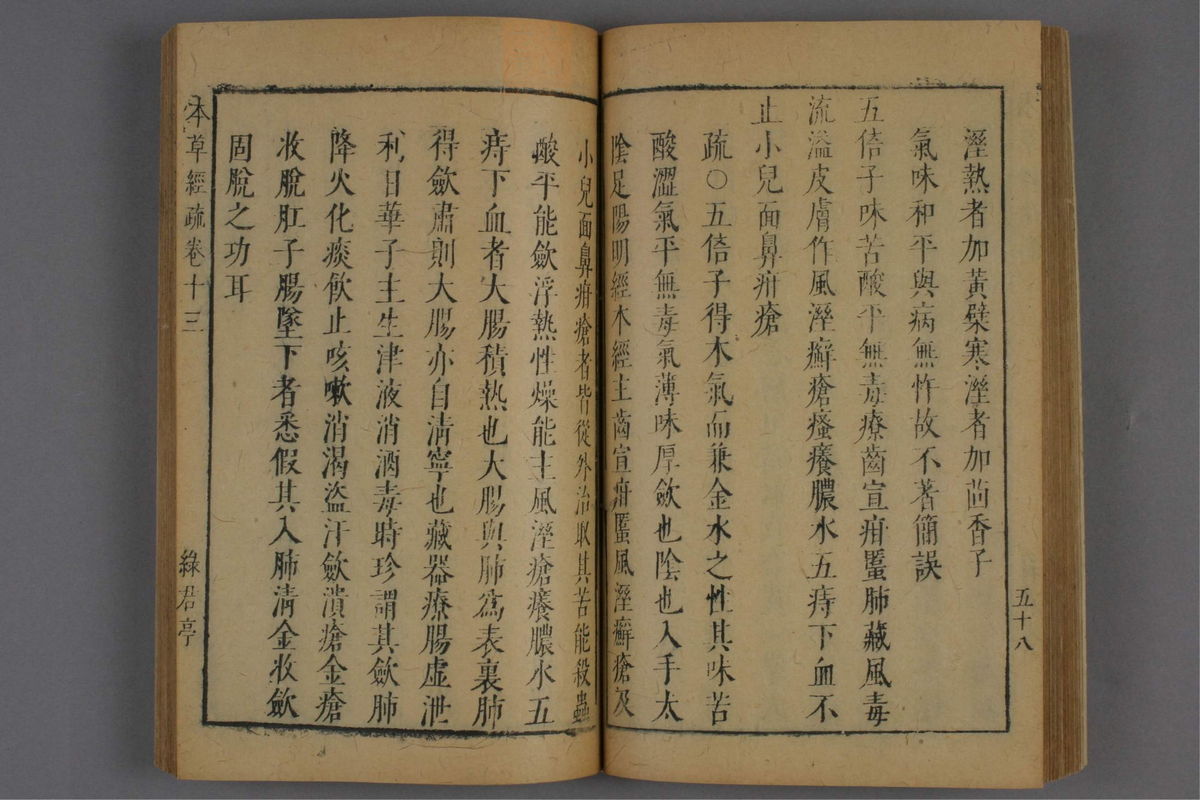 溼熱者加黃檗寒溼者加茴香子
氣味和平與病無忤故不著簡誤
五倍子味苦酸平無毒療齒宣疳䘌肺藏風毒
流溢皮膚作風溼癬瘡瘙癢膿水五痔下血不
止小兒面鼻疳瘡
疏〇五倍子得木氣而兼金水之性其味苦
酸澀氣平無毒氣薄味厚斂也陰也入手太
陰足陽明經本經主齒宣疳䘌風溼癬瘡及
五十八
小兒面鼻疳瘡者皆從外治取其苦能殺蟲
酸平能斂浮熱性燥能主風溼瘡癢膿水五
痔下血者大腸積熱也大腸與肺爲表裏肺
得斂肅則大腸亦自清寧也藏器療腸虛泄
利日華子主生津液消酒毒時珍謂其斂肺
降火化痰飲止咳嗽消渴盜汗斂潰瘡金瘡
收脫肛子腸墜下者悉假其入肺清金收斂
固脫之功耳
本草經疏卷十三
綠君亭